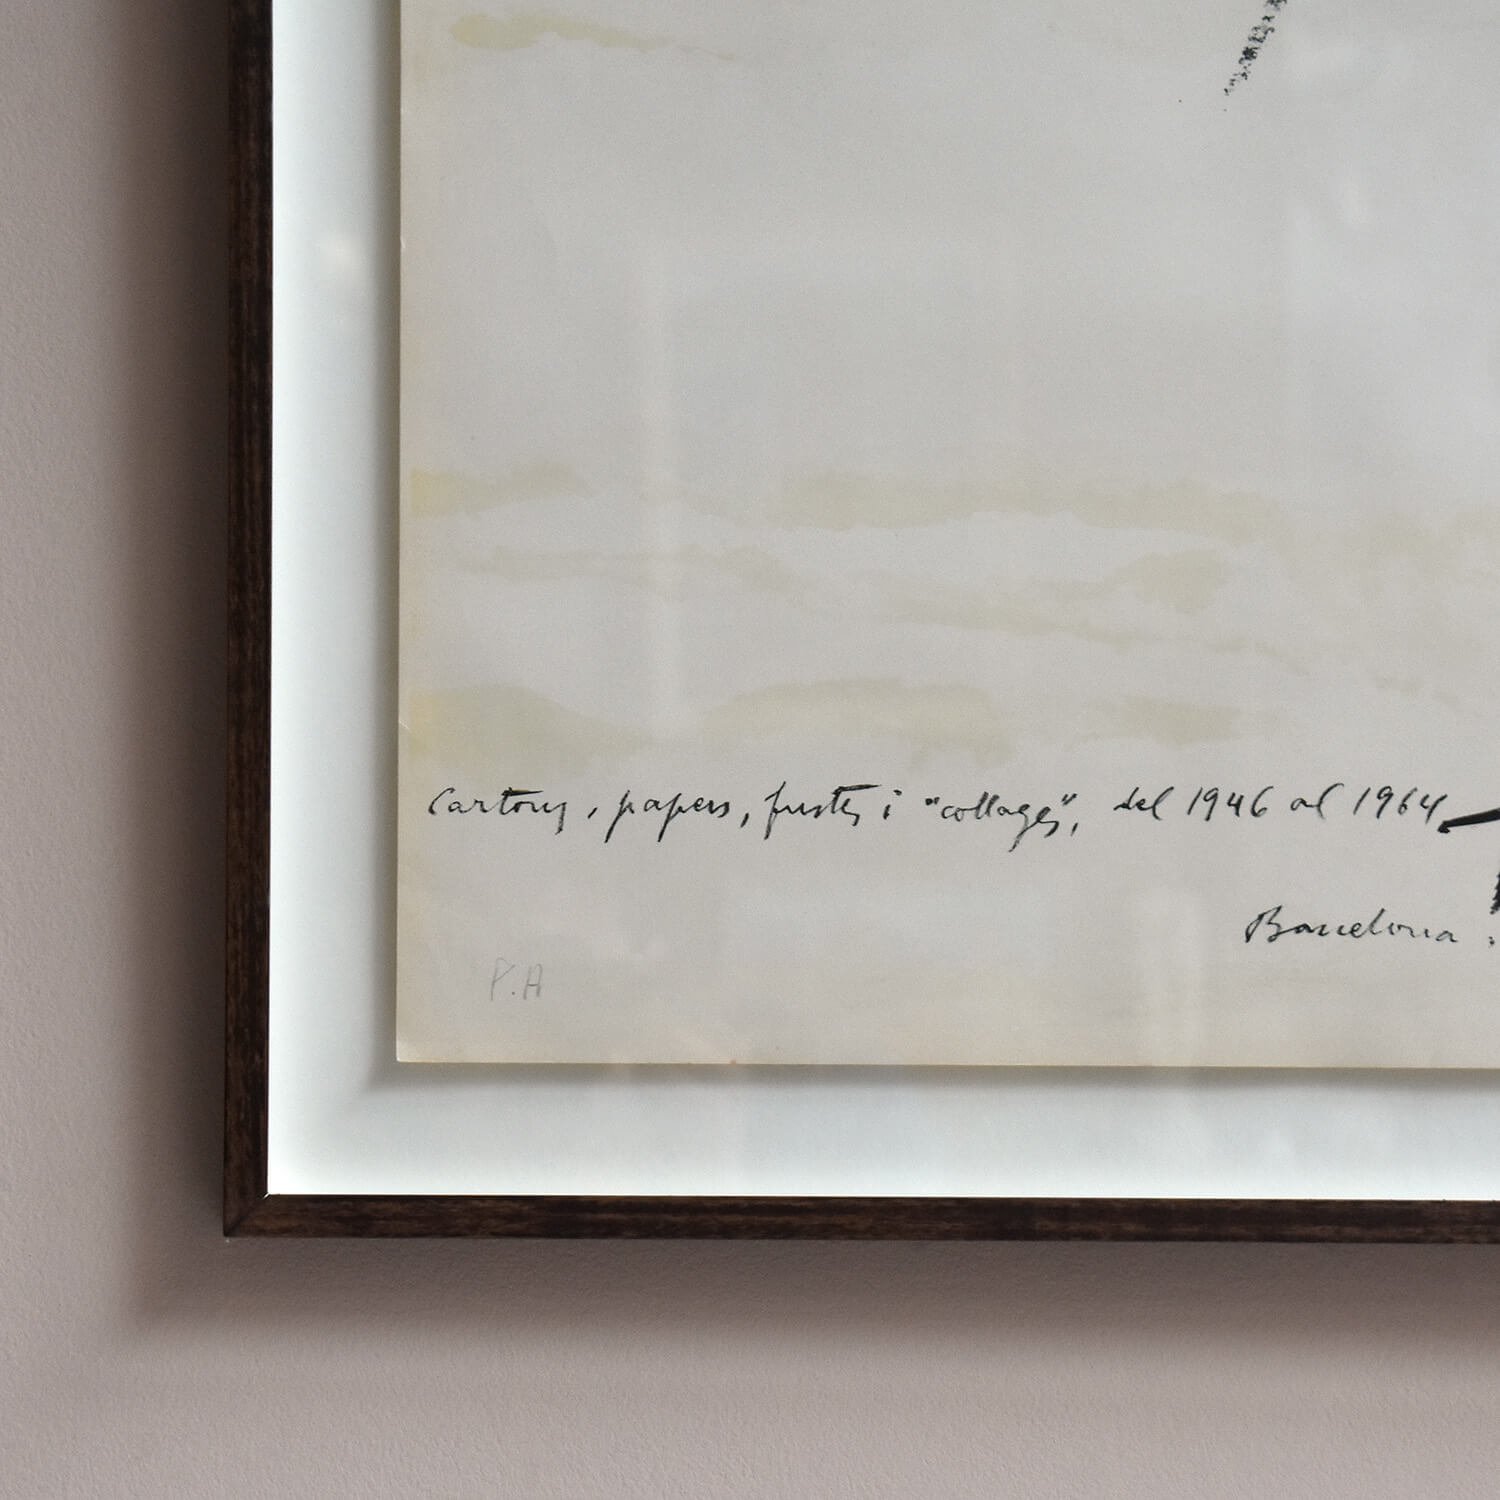 Cartons, papers, fustes i "collages", del 1946 al 1964
Barcelona.
P.A